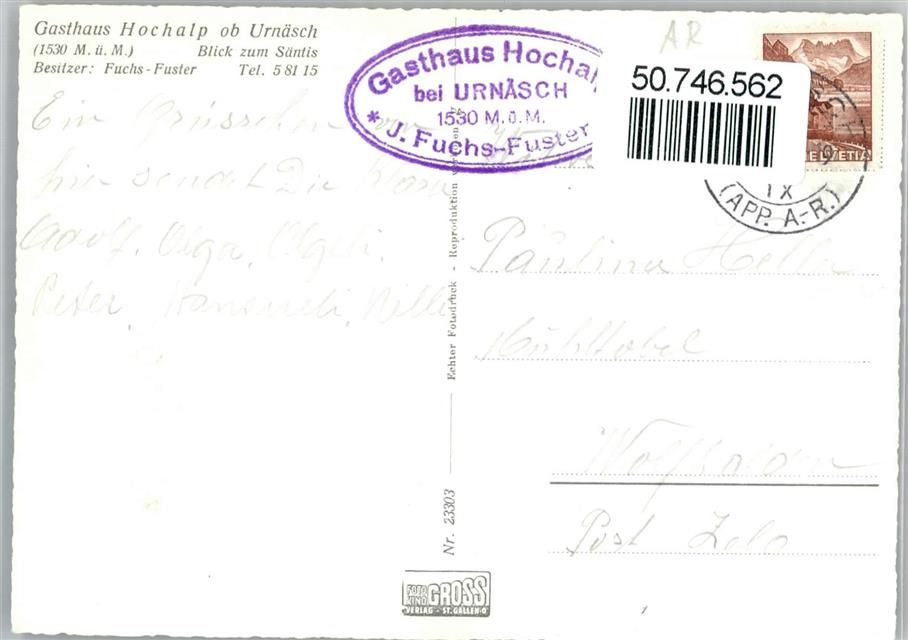 Gasthaus Hochalp ob Urnäsch
(1530 M. ü. M.) Blick zum Säntis
Besitzer: Fuchs-Fuster Tel. 5 81 15
Ein Grüsschen von
hier sendet Dir
Adolf, Olga, Olgeli,
Peter, Hansueli, Willi
Gasthaus Hochalp
bei URNÄSCH
1530 M.ü.M.
* J. Fuchs-Fuster
AR
50.746.562
HELVETIA
IX
(APP. A.-R.)
Paulina
Wolfhalden
Post
Echter Fotodruck - Reproduktion
Nr. 23303
FOTO KINO GROSS
VERLAG - ST. GALLEN-O